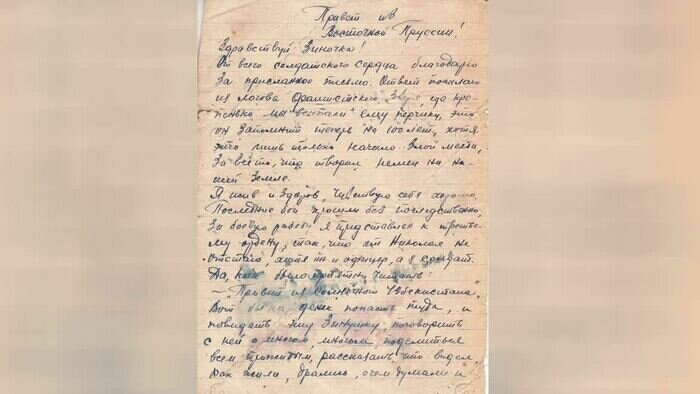 Привет из
Восточной Пруссии!
Здравствуй Зиночка!
От всего солдатского сердца благодарю
За присланное письмо. Ответ посылаю
из логова Фашистского Зверя, где кре-
пенько мы всыпали ему перчику, что
он запомнит теперь на 100 лет, хотя
это лишь только начало злой мести,
За все то, что творил немец на на-
шей Земле.
Я жив и здоров, чувствую себя хорошо.
Последние бои прошли без последственно,
За боевую работу я представлен к третье-
му ордену, так, что от Николая не
отстаю, хотя он и офицер, а я солдат.
Да, как было приятно читать:
— "Привет из солнечного Узбекистана",
Вот бы на денек попасть туда, и
повидать эту Зинушку, поговорить
с ней о многом, многом, поделиться
всем прожитым, рассказать что видел,
как жили, дрались, о чем думали и